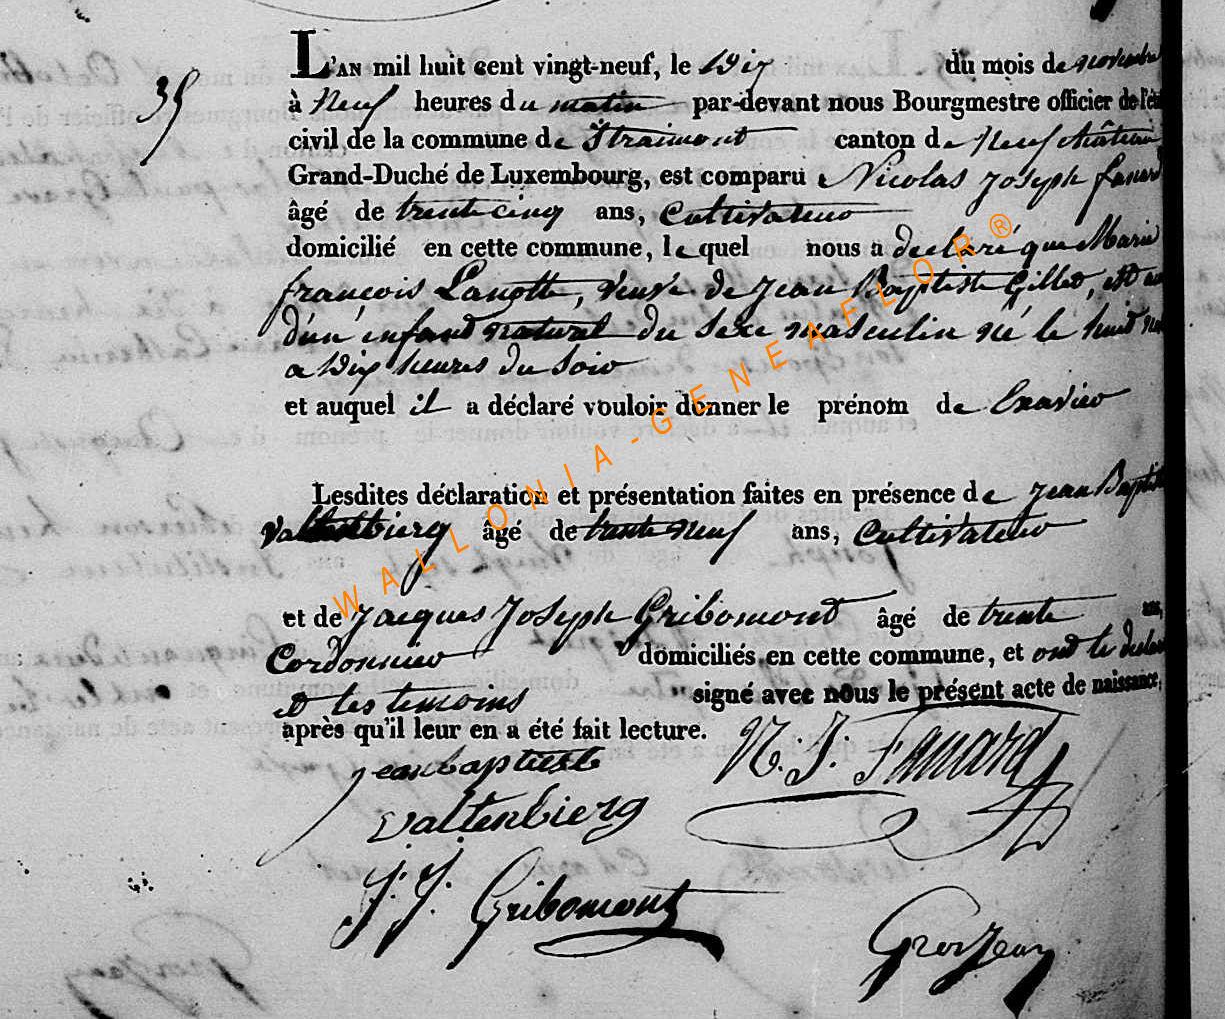 35
L'AN mil huit cent vingt-neuf, le Dix du mois de novembre
à Neuf heures du matin par-devant nous Bourgmestre officier de l'éta
civil de la commune de Straimont canton de Neufchâteau
Grand-Duché de Luxembourg, est comparu Nicolas Joseph fanard
âgé de trente cinq ans, Cultivateur
domicilié en cette commune, le quel nous a déclaré que Marie
françois Lanotte, veuve de Jean Baptiste Gillet, est
d'un enfant natural du sexe masculin né le huit
a Dix heures du soir
et auquel il a déclaré vouloir donner le prénom de Exavier
Lesdites déclaration et présentation faites en présence de Jean Baptiste
Valtenbierg âgé de trente neuf ans, Cultivateur
et de Jacques Joseph Gribomont âgé de trente ans,
Cordonnier domiciliés en cette commune, et ont le
et les temoins signé avec nous le présent acte de naissance,
après qu'il leur en a été fait lecture.
jean baptiste N. J. Fanard
valtenbierg
J. J. Gribomont
Grosjean
WALLONIA-GENEAFLOR®